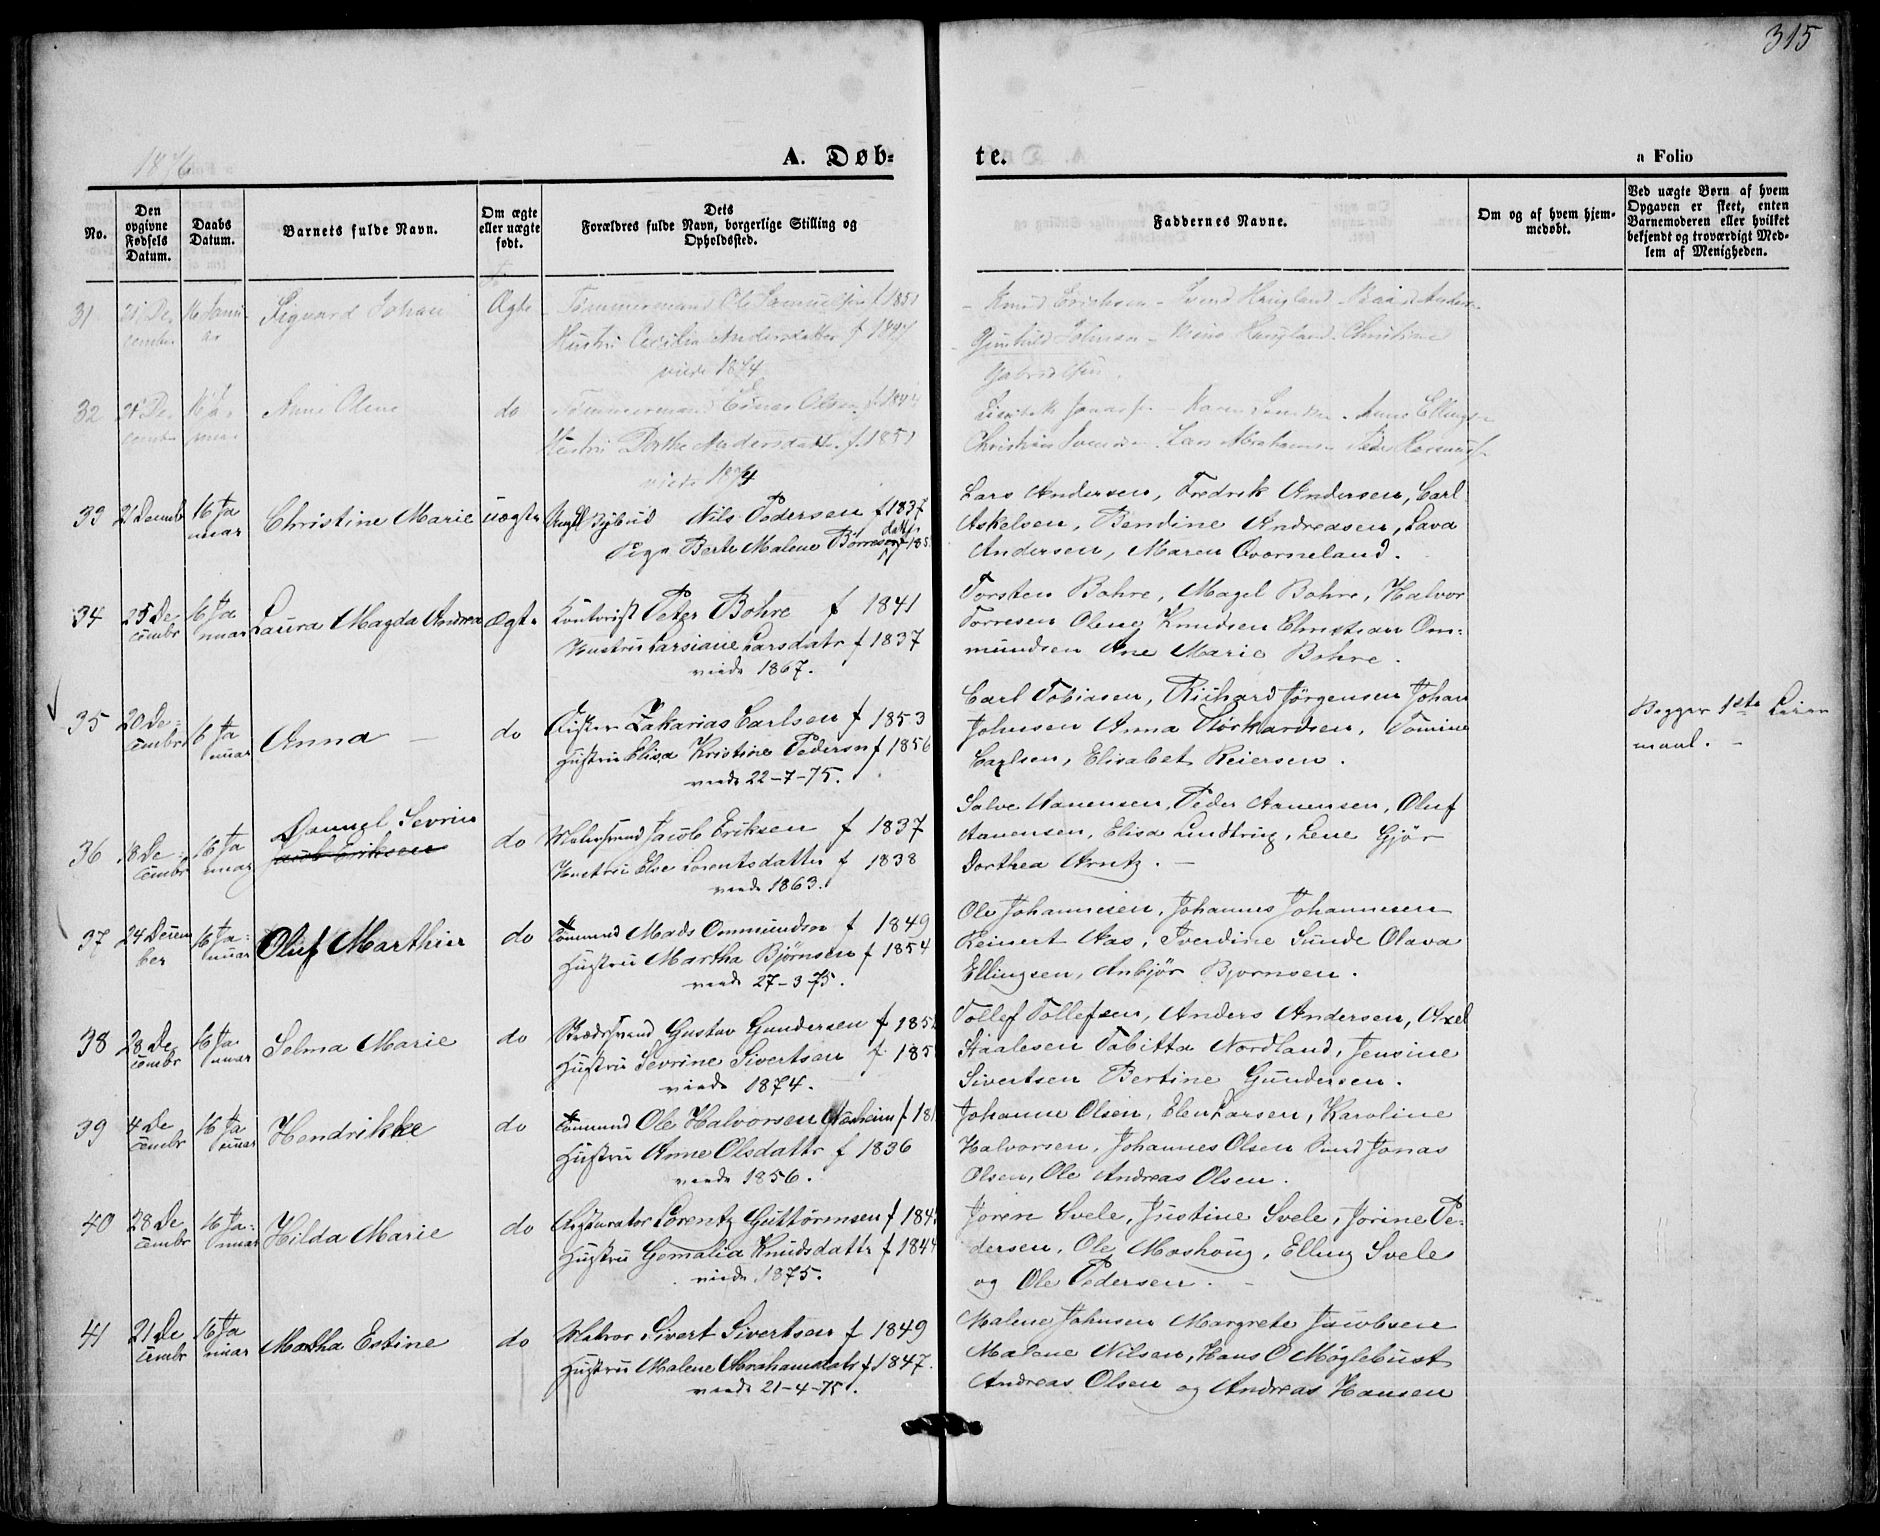 315
1876
A. Døb-
te.
a Folio
No.
Den opgivne Fødsels Datum.
Daabs Datum.
Barnets fulde Navn.
Om ægte eller uægte født.
Dets Forældres fulde Navn, borgerlige Stilling og Opholdssted.
Faddernes Navne.
Om og af hvem hjemmedøbt.
Ved uægte Børn af hvem Opgaven er skeet, enten Barnemoderen eller hvilket bekjendt og troværdigt Medlem af Menigheden.
31 21 De- 16 Janu Sigvard Johan Ægte Tømmermand Ole Samuelsen f 1851
cember ar Hustru Cecilia Andersdatter f
viede 1874
Knud Erichsen Svend Haugland
Gunhild Johnsen Haugland Christine
Gabrielsen
32 21 De- 16 Ja- Anne Oline do Tømmermand Olsen
cember nuar Hustru Dorthe Andersdatter f. 1851
viede 1874
Karen Anne Ellings
Christian Lars Abrahamsen Peder
33 21 Decemb 16 Ja Christine Marie uægte Bybud Nils Pedersen f 1837
nuar Pige Berte Malene datter
Lars Andersen, Fredrik Andersen, Carl
Askelsen, Bendine Andreasen, Lava
Andersen, Maren Qvorneland.
34 25 De 16 Ja Laura Magda Andrea Ægte Kontorist Peter Bohre f 1841
cembr nuar Hustru Larsiane Larsdatr f 1837
viede 1867.
Torsten Bohre, Magel Bohre, Halvor
Torresen Olene Knudsen Christian Om=
mundsen Ane Marie Bohre.
35 20 De- 16 Ja Anna — do Fisker Zakarias Carlsen f 1853
cembr nuar Hustru Elisa Kristine Pedersn f 1856
viede 22-7-75.
Carl Tobiasen, Richard Jørgensen Johan
Johnsen Anna Størkardsen, Tomine
Carlsen, Elisabet Reiersen.
Begges 1ste Leier
maal. —
36 18 De- 16 Ja Daniel Sevrin do Jacob Eriksen f 1837
cembr nuar Jacob Eriksen Hustru Else Lorentsdatter f 1838
viede 1863.
Salve Aanensen, Peder Aanensen, Oluf
Aanensen, Elisa Lindtrup, Lene Gjør
Dorthea Arntz. —
37 24 Decem 16 Ja- Oluf Marthin do Tømmnd Mads Ommundsn f 1849
ber nuar Hustru Martha Bjørnsen f 1854
viede 27-3-75.
Ole Johannesen, Johannes Johannesen
Reinert Aas, Sverdine Sunde Olava
Ellingsen, Anbjør Bjornsen.
38 28 De 16 Ja Selma Marie do Gustav Gundersen f 185
cembr nuar Hustru Sevrine Sivertsen f 185
viede 1874.
Tollef Tollefsen, Anders Andersen, Axel
Staalesen Tabitta Nordland, Jensine
Sivertsen Bertine Gundersen.
39 4 De 16 Ja Hendrikke do Tømmnd Ole Halvorsen f 18
cembr nuar Hustru Anne Olsdattr f 1836
viede 1856.
Johanne Olsen, Elen Larsen, Karoline
Halvorsen, Johannes Olsen Jonas
Olsen, Ole Andreas Olsen.
40 28 De 16 Ja- Hilda Marie do Lorentz Guttormsen f 184
cembr nuar Hustru Gemalia Knudsdattr f 1844
viede 1875.
Joren Svele, Justine Svele, Jorine Pe-
dersen, Ole Moshoug, Elling Svele
og Ole Pedersen. —
41 21 De 16 Ja Martha Estine do Matros Sivert Sivertsen f 1849
cembr nuar Hustru Malene Abrahamdatr f 1847.
viede 21-4-75.
Malene Johnsen Margrete Jacobsen
Malene Nilsen, Hans O Møglebust
Andreas Olsen og Andreas Hansen